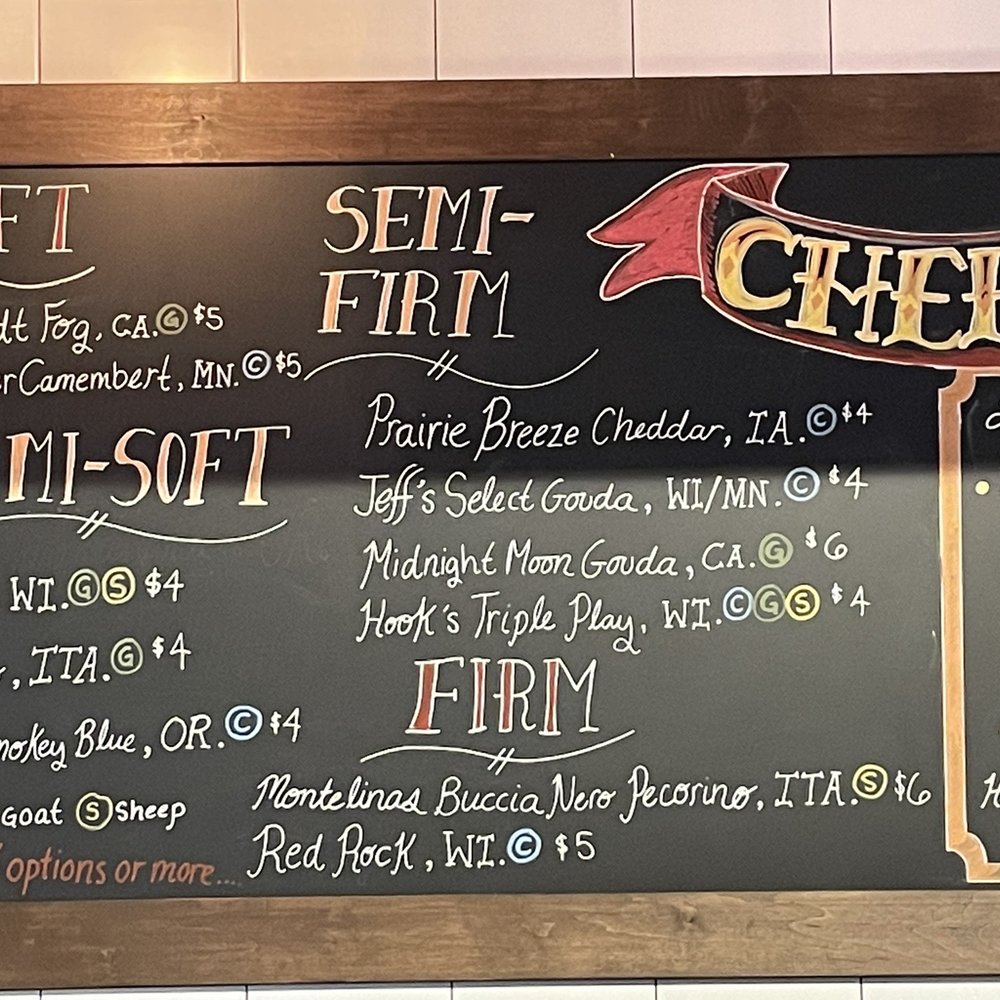 FT
Fog, CA. G $5
Camembert, MN. C $5
MI-SOFT
WI. G S $4
, ITA. G $4
Blue, OR. C $4
Goat S Sheep
options or more...
SEMI-
FIRM
Prairie Breeze Cheddar, IA. C $4
Jeff's Select Gouda, WI/MN. C $4
Midnight Moon Gouda, CA. G $6
Hook's Triple Play, WI. C G S $4
FIRM
Montelinas Buccia Nero Pecorino, ITA. S $6
Red Rock, WI. C $5
CHEE